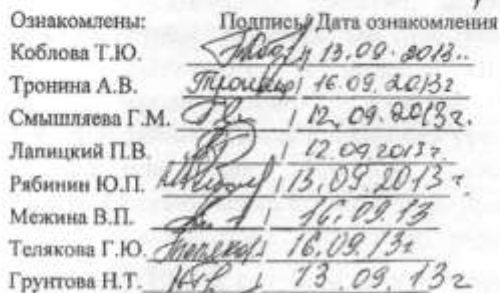 Ознакомлены: Подпись/ Дата ознакомления
Коблова Т.Ю. / 13.09.2013г.
Тронина А.В. / 16.09.2013г
Смышляева Г.М. / 12.09.2013г.
Лапицкий П.В. / 12.09.2013г.
Рябинин Ю.П. / 13.09.2013г
Межина В.П. / 16.09.13
Телякова Г.Ю. / 16.09.13г
Грунтова Н.Т. / 13.09.13г